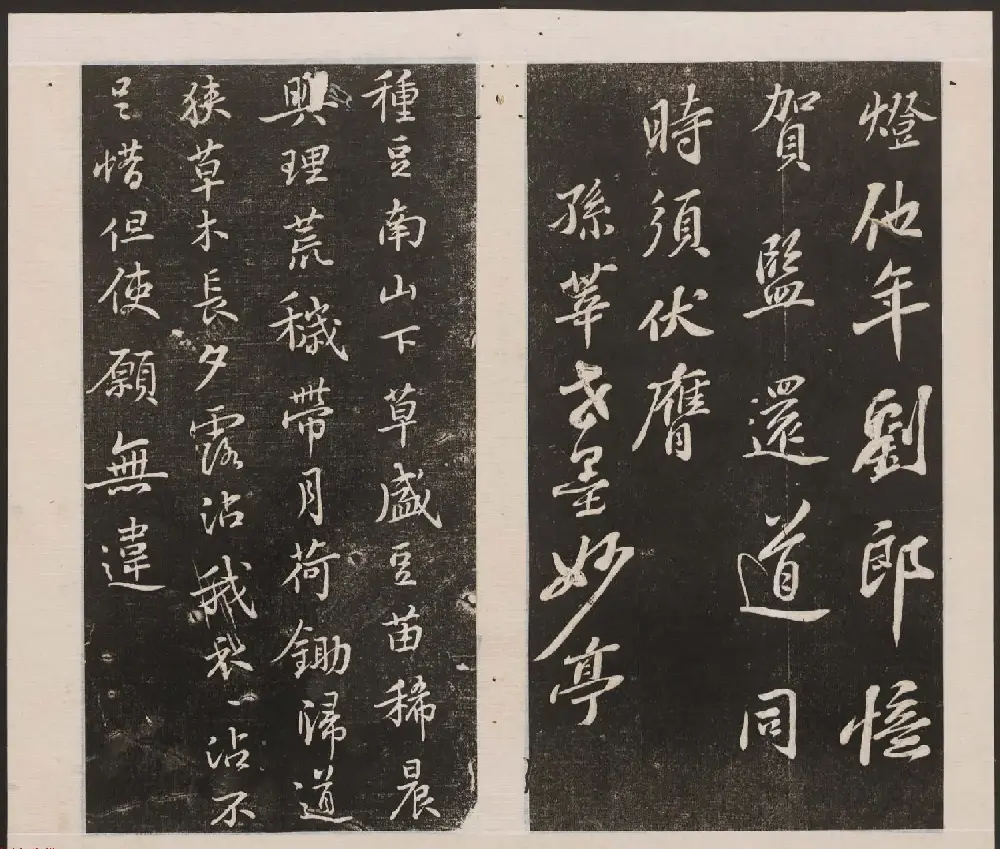 燈他年劉郎憶
賀監還道同
時須伏膺
孫莘老墨妙亭
種豆南山下草盛豆苗稀晨
興理荒穢帶月荷鋤歸道
狹草木長夕露沾我衣〻沾不
足惜但使願無違